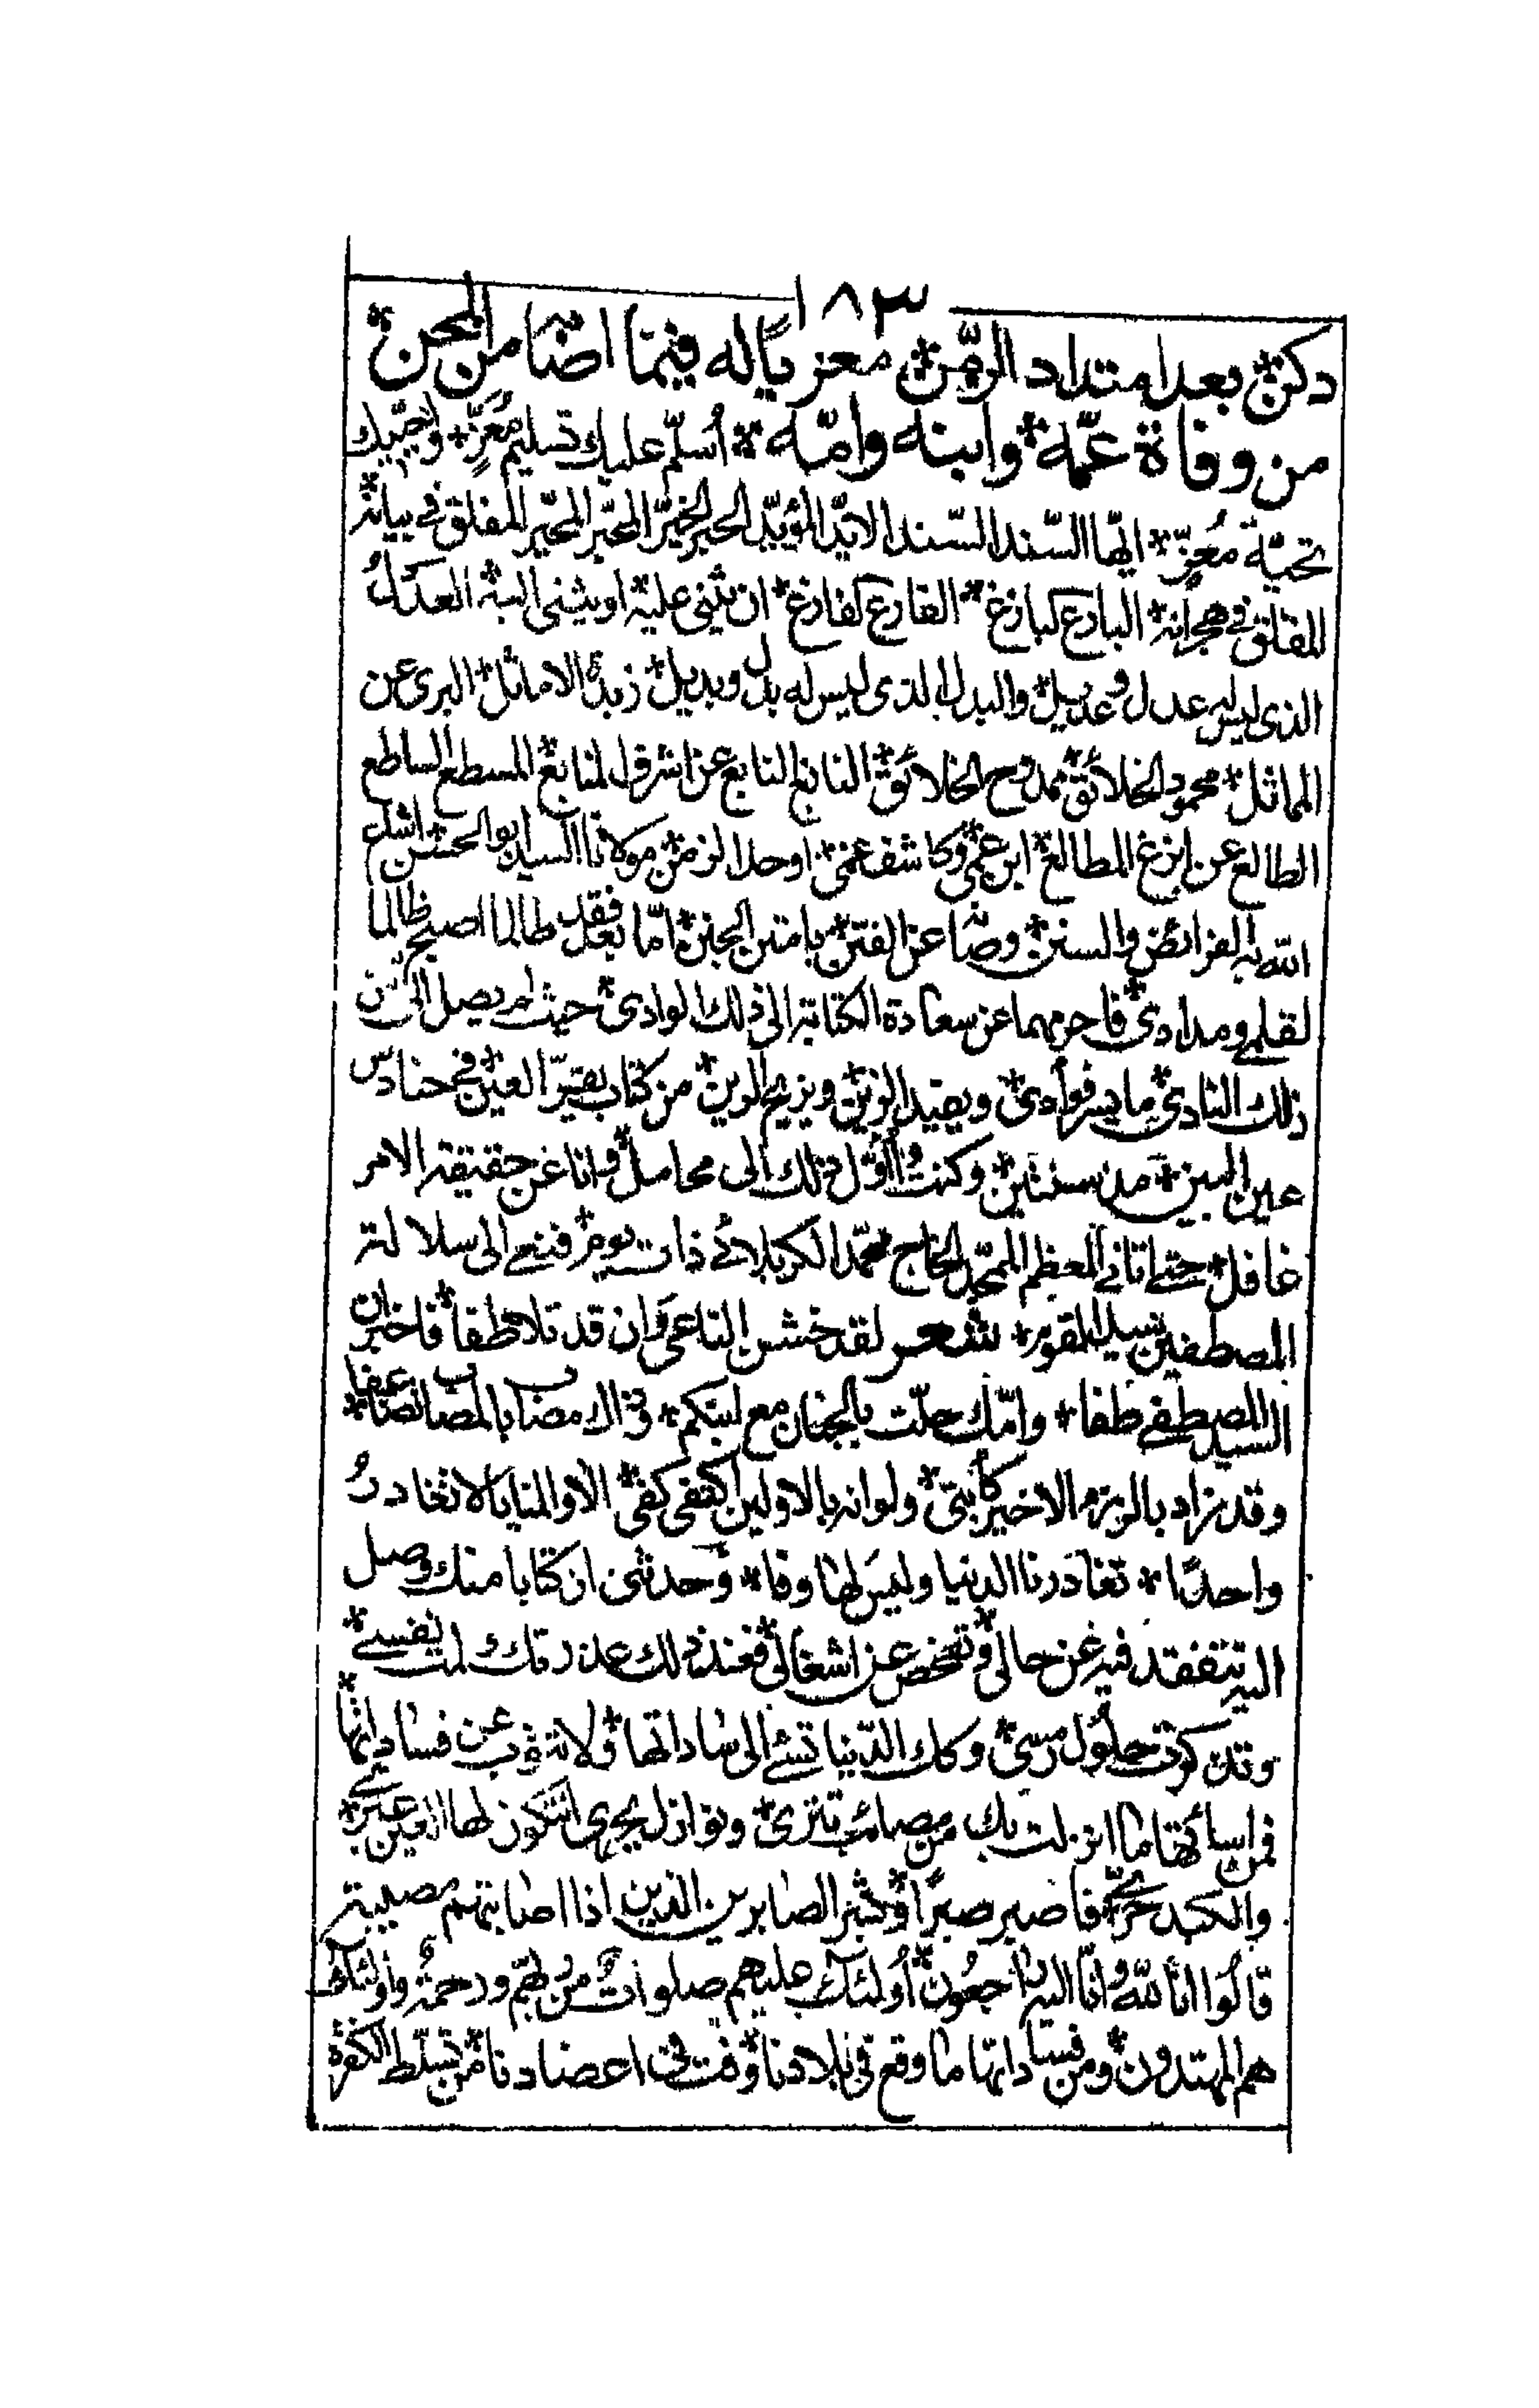 ١٨٣
دكن * بعد امتداد الزمن * معزيا له فيما اضامن المحن *
من وفاة عمّه * وابنه وامّه * اُسلّم عليك تسليم مُعزٍّ * واُحيّيك
تحيّة مُعِزّ * ايّها السّند السّند الايّد المؤيّد الحبر الخيّر المحبّر المخيّر المفلق فى بيانه *
المقلق فى هجرانه * البارع كبازغ * الفارع كفارغ * ان يثنى عليه * او يثنى اليه * العدل
الذى ليس له عدل وعديل * والبدل الذى ليس له بدل وبديل * زبدة الاماثل * البرى عن
المماثل * محمود الخلائق * ممدوح الخلائق * النابغ النابع عن اشرف المنابع * المسطع الساطع
الطالع عن ابزغ المطالع * ابن عمّى * وكاشف غمّى * اوحد الزمن * مولانا السيد ابو الحسن * اشاع
الله به الفرائض والسنن * وصانه عن الفتن * بامتن الجنن * امّا بعد فقد طالما اصبح ظالما
لقلمى ومدادى * فاحرمهما عن سعادة الكتابة الى ذلك الوادى * حيث لم يصل الىّ من
ذلك النادى * ما يسر فوادى * ويفيد الزين * ويزيح الرين * من كتاب يقرّ العين * فى حنادس
عين البين * مذ سنتين * وكنت اُأوّل ذلك الى محامل * وانا عن حقيقة الامر
غافل * حتى اتانى المعظم الممجّد الحاج محمّد الكربلائى ذات يوم * فنعى الى سلالة
المصطفين سيد القوم * شعر لقد خشن الناعى وان قد تلاطفا * فاخبر ان
السيد المصطفى طفا * وامّك حلّت بالجنان مع ابنكم * وذا لامضاب بالمصائب ضاعفا *
وقد زاد بالرزء الاخير كآبتى * ولو انه بالاولين اكتفى كفى * الا والمنايا لا تغادرُ
واحدًا * تغادرنا الدنيا وليس لها وفا * وحدثنى ان كتابا منك وصل
اليه تتفقد فيه عن حالى * وتفحص عن اشغالى * فعند ذلك عذرتك لمت نفسى *
وتذكرت حلول رمسى * وكك الدّنيا تسئ الى ساداتها * ولا تتوب عن فساداتها *
فمن اسائتها ما انزلت بك من مصائب تترى * ونوازل يجرى لتكون لها العين عبرى *
والكبد حرّى * فاصبر صبرًا * وبشر الصابرين الذين اذا اصابتهم مصيبة
قالُوا انّا للّه وانّا اليه راجعُون * اُولئك عليهم صلواتٌ من ربّهم ورحمةٌ واُولئك
هم المهتدون * ومن فساداتها ما وقع فى بلادنا * وفت فى اعضادنا * من تسلّط الكفرة